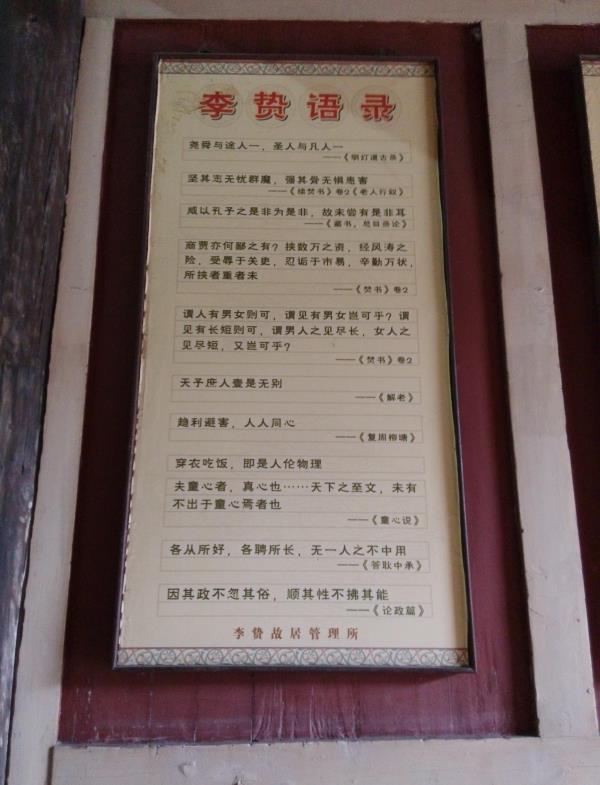 李贽语录
尧舜与途人一，圣人与凡人一
——《明灯道古录》
坚其志无忧群魔，强其骨无惧患害
——《续焚书》卷2《老人行叙》
咸以孔子之是非为是非，故未尝有是非耳
——《藏书，总目录论》
商贾亦何鄙之有？挟数万之资，经风涛之
险，受辱于关吏，忍诟于市易，辛勤万状，
所挟者重者未
——《焚书》卷2
谓人有男女则可，谓见有男女岂可乎？谓
见有长短则可，谓男人之见尽长，女人之
见尽短，又岂可乎？
——《焚书》卷2
天子庶人壹是无别
——《解老》
趋利避害，人人同心
——《复周柳塘》
穿衣吃饭，即是人伦物理
夫童心者，真心也……天下之至文，未有
不出于童心焉者也
——《童心说》
各从所好，各聘所长，无一人之不中用
——《答耿中承》
因其政不忽其俗，顺其性不拂其能
——《论政篇》
李贽故居管理所